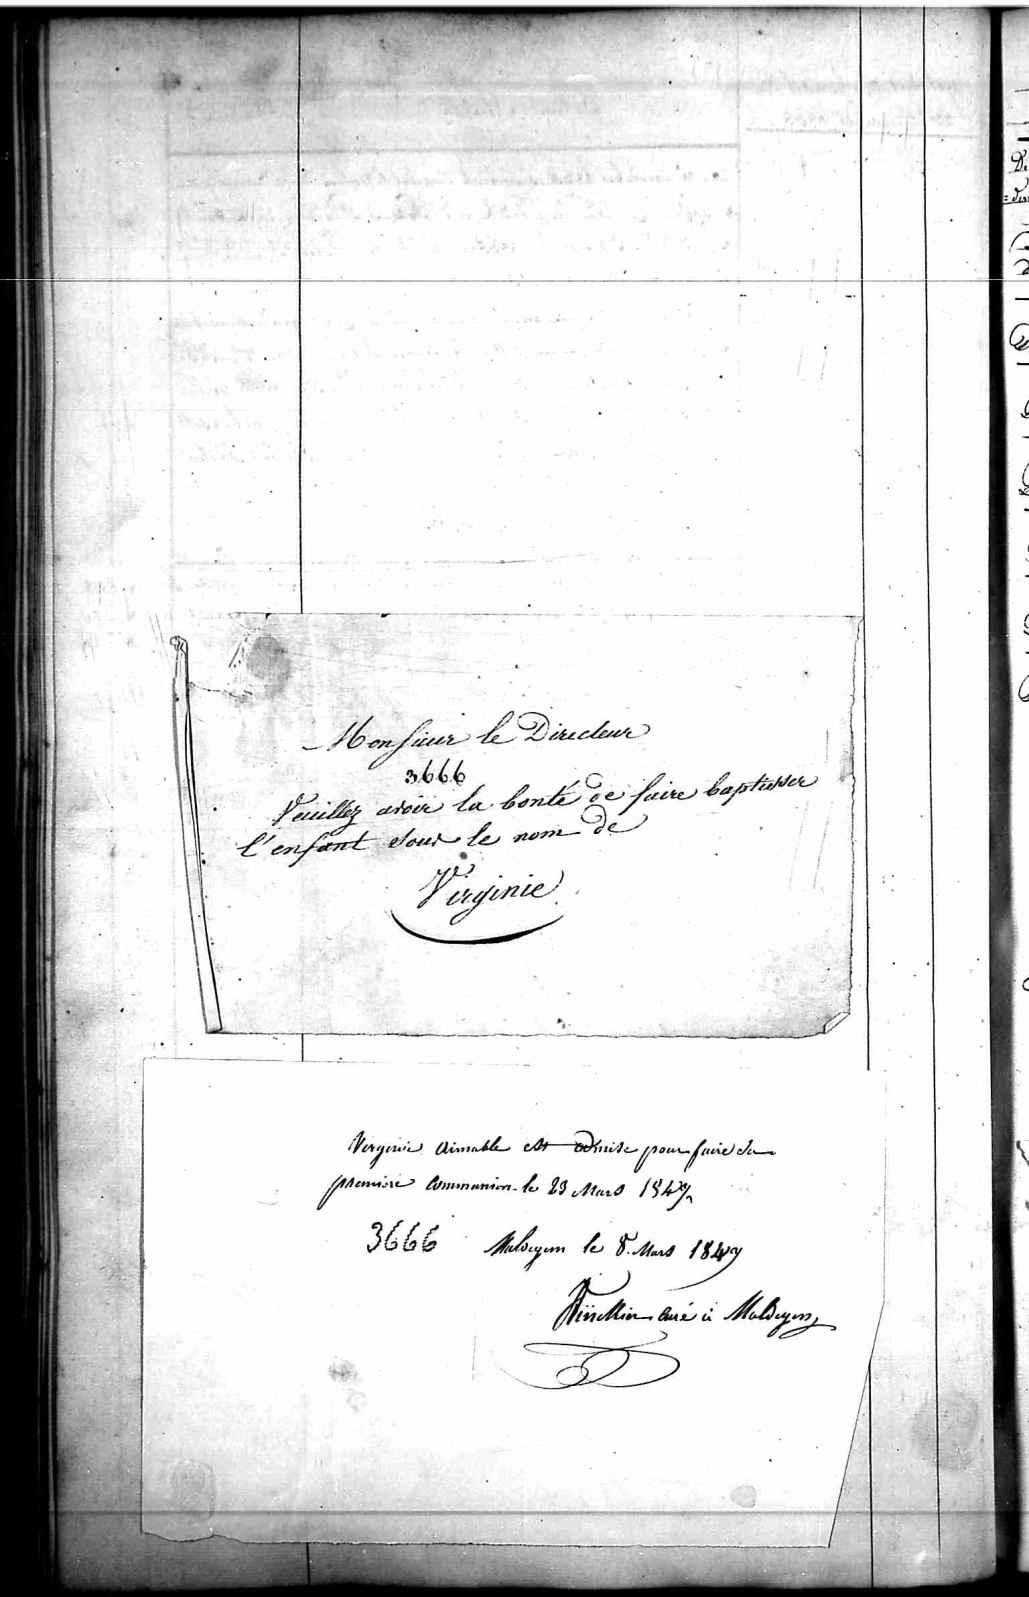 Monsieur le Directeur
3666
Veuillez avoir la bonté de faire baptisser
l'enfant sous le nom de
Virginie
Virginie aimable est admise pour faire sa
première Communion le 23 Mars 1847
3666 Maldegem le 8 Mars 1847
curé à Maldegem